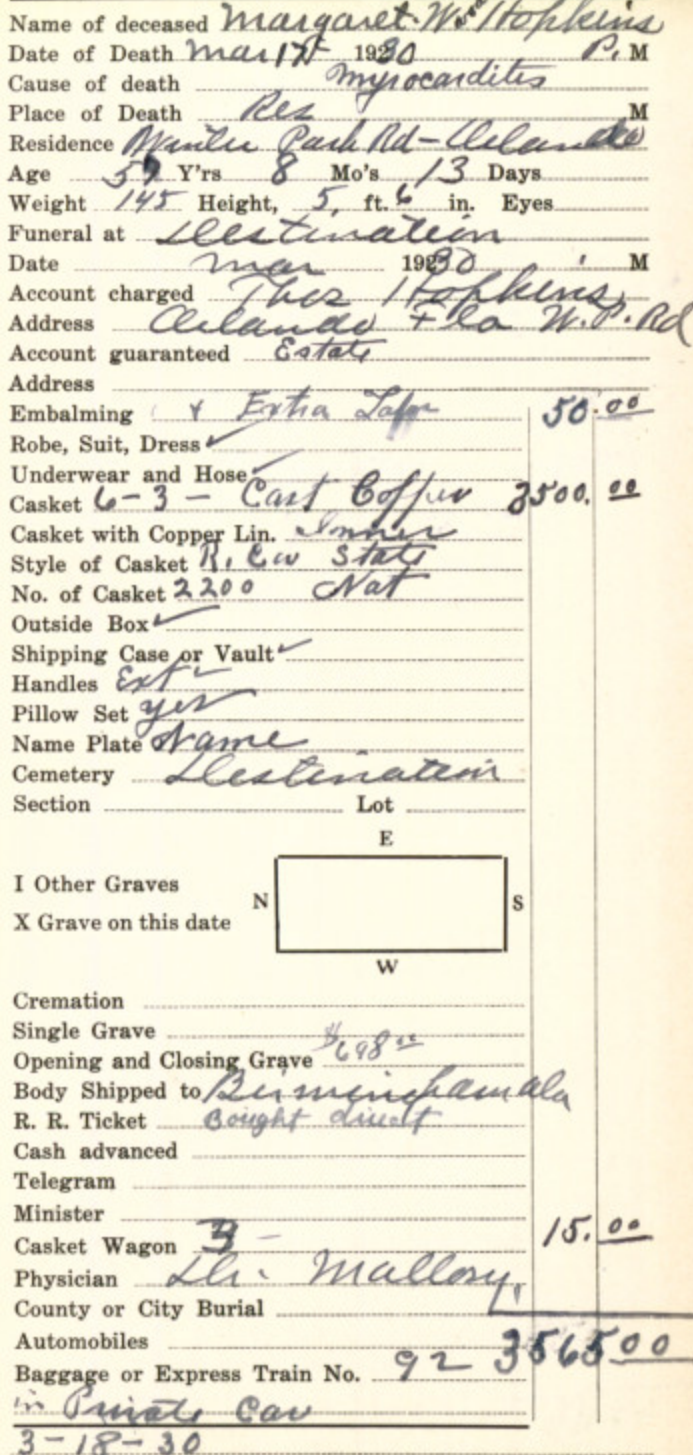 Name of deceased Margaret Wood Hopkins
Date of Death Mar 17th 1930 P. M
Cause of death Myrocardites
Place of Death Res M
Residence Winter Park Rd - Orlando
Age 59 Y'rs 8 Mo's 13 Days
Weight 145 Height, 5, ft. 6 in. Eyes
Funeral at Destination
Date Mar 1930 M
Account charged Thos Hopkins
Address Orlando Fla W. P. Rd
Account guaranteed Estate
Address
Embalming & Extra Labor 50.00
Robe, Suit, Dress ✓
Underwear and Hose ✓
Casket 6-3 - Cast Copper 3500.00
Casket with Copper Lin. Inner
Style of Casket R. Cor State
No. of Casket 2200 Nat
Outside Box ✓
Shipping Case or Vault ✓
Handles Ext
Pillow Set yes
Name Plate Name
Cemetery Destination
Section Lot
E
I Other Graves
N S
X Grave on this date
W
Cremation
Single Grave
Opening and Closing Grave $698.00
Body Shipped to Birmingham Ala
R. R. Ticket Bought direct
Cash advanced
Telegram
Minister
Casket Wagon 3 - 15.00
Physician Dr. Mallory
County or City Burial
Automobiles 3565 00
Baggage or Express Train No. 92
in Private Car
3-18-30